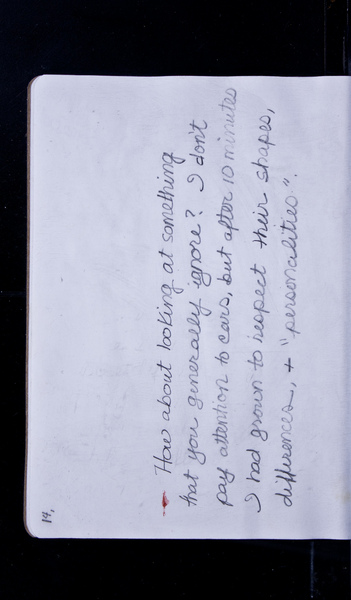 14.
How about looking at something
that you generally ignore? I don't
pay attention to cars, but after 10 minutes
I had grown to respect their shapes,
differences, + "personalities".